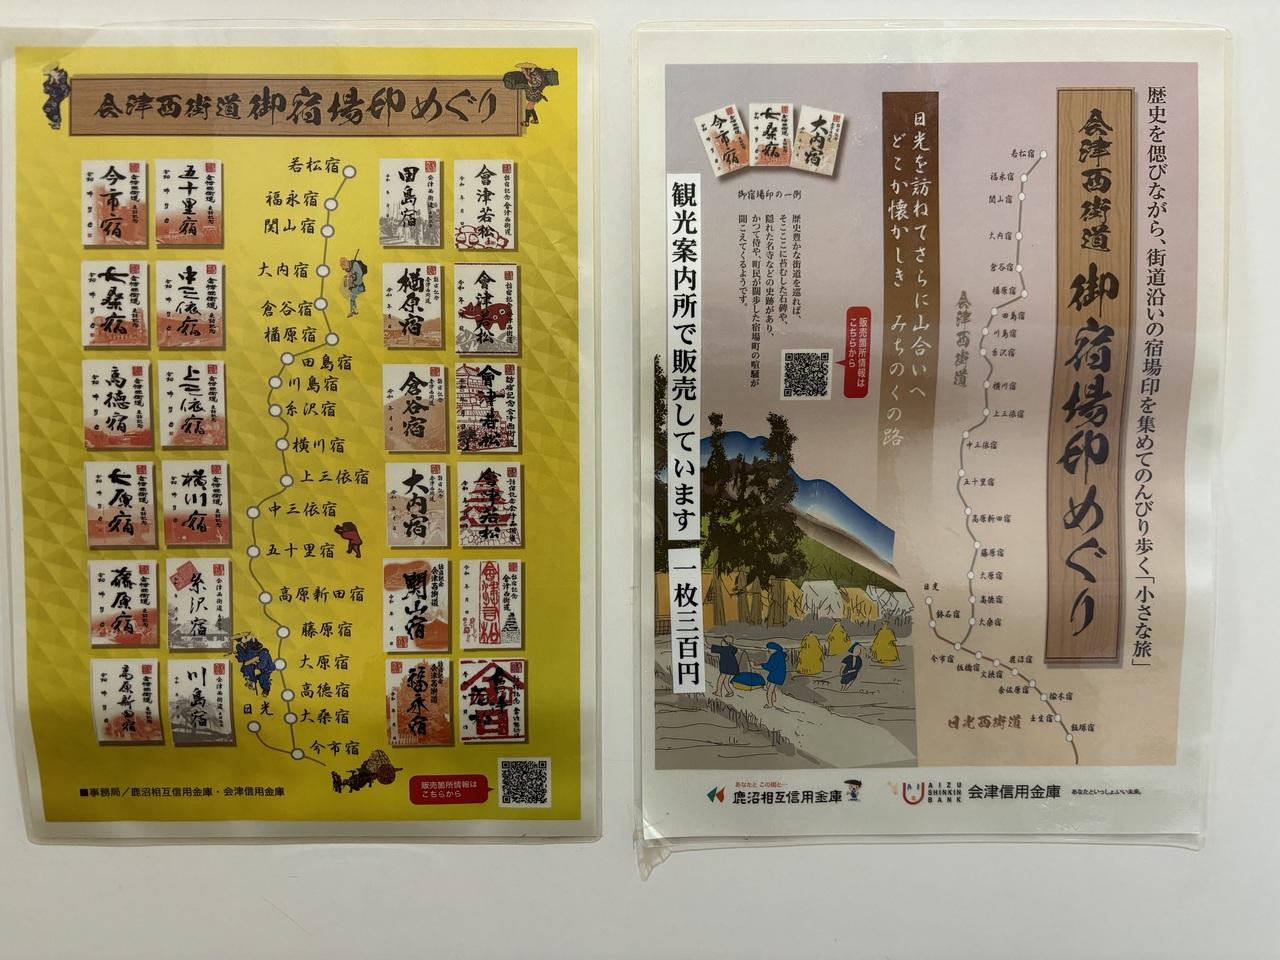 会津西街道御宿場印めぐり
今市宿
五十里宿
大桑宿
中三依宿
高徳宿
上三依宿
大原宿
横川宿
藤原宿
糸沢宿
高原新田宿
川島宿
若松宿
福永宿
関山宿
大内宿
倉谷宿
楢原宿
田島宿
川島宿
糸沢宿
横川宿
上三依宿
中三依宿
五十里宿
高原新田宿
藤原宿
大原宿
高徳宿
大桑宿
日光
今市宿
田島宿
會津若松
楢原宿
會津若松
倉谷宿
會津若松
大内宿
會津若松
関山宿
會津若松
福永宿
■事務局/鹿沼相互信用金庫・会津信用金庫
販売箇所情報は
こちらから
歴史を偲びながら、街道沿いの宿場印を集めてのんびり歩く「小さな旅」
会津西街道 御宿場印めぐり
若松宿
福永宿
関山宿
大内宿
倉谷宿
楢原宿
田島宿
川島宿
糸沢宿
横川宿
上三依宿
中三依宿
五十里宿
高原新田宿
藤原宿
大原宿
高徳宿
大桑宿
日光
鉢石宿
今市宿
板橋宿
文挾宿
鹿沼宿
奈佐原宿
楡木宿
壬生宿
飯塚宿
会津西街道
日光西街道
日光を訪ねてさらに山合いへ
どこか懐かしき みちのくの路
今市宿
大桑宿
大内宿
御宿場印の一例
歴史豊かな街道を巡れば、
そこここに苔むした石碑や、
隠れた名寺などの史跡があり、
かつて侍や、町民が闊歩した宿場町の喧騒が
聞こえてくるようです。
販売箇所情報は
こちらから
観光案内所で販売しています 一枚三百円
あなたと この街と…
鹿沼相互信用金庫
AIZU
SHINKIN
BANK
会津信用金庫
あなたといっしょいい未来。